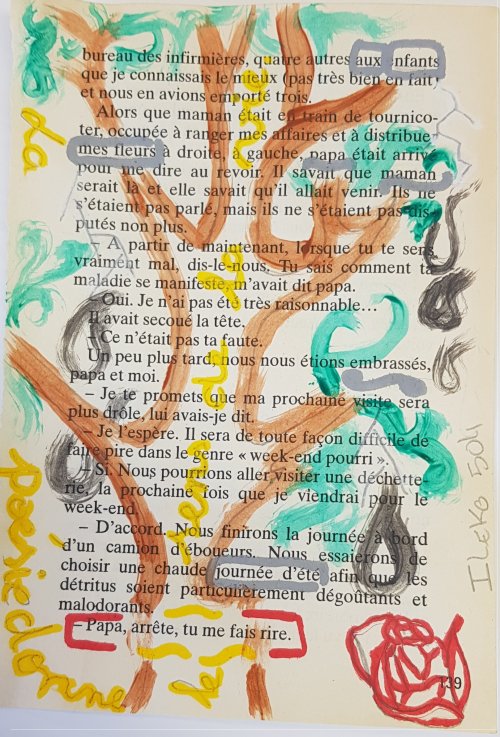 bureau des infirmières, quatre autres aux nfants
que je connaissais le mieux (pas très bien en fait)
et nous en avions emporté trois.
Alors que maman était en train de tournico-
ter, occupée à ranger mes affaires et à distribue
mes fleurs à droite, à gauche, papa était arrivé
pour me dire au revoir. Il savait que maman
serait là et elle savait qu'il allait venir. Ils ne
s'étaient pas parlé, mais ils ne s'étaient pas dis-
putés non plus.
– A partir de maintenant, lorsque tu te sens
vraiment mal, dis-le-nous. Tu sais comment ta
maladie se manifeste, m'avait dit papa.
– Oui. Je n'ai pas été très raisonnable…
Il avait secoué la tête.
– Ce n'était pas ta faute.
Un peu plus tard, nous nous étions embrassés,
papa et moi.
– Je te promets que ma prochaine visite sera
plus drôle, lui avais-je dit.
– Je l'espère. Il sera de toute façon difficile de
faire pire dans le genre « week-end pourri ».
– Si. Nous pourrions aller visiter une déchette-
rie, la prochaine fois que je viendrai pour le
week-end.
– D'accord. Nous finirons la journée à bord
d'un camion d'éboueurs. Nous essaierons de
choisir une chaude journée d'été afin que les
détritus soient particulièrement dégoûtants et
malodorants.
– Papa, arrête, tu me fais rire.
139
la
poésie donne